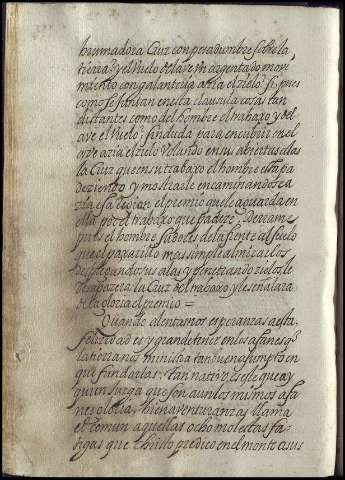 brumadora Cruz con pesadumbre sobre la
tierra? y el vuelo del ave un argentado movi
miento con galanteria azia el zielo? si, pues
como se juntan en esta clausula cosas tan
distantes como del hombre el trabaxo y del
ave el vuelo? sin duda para encubrir en el
orbe azia el zielo volando en sus abiertas alas
la Cruz que en su trabaxo el hombre
deziendo y mostrarle encaminandose a
region el premio que le aguarda en
ella por el trabaxo que padeze. Dexame
pues el hombre sudores de la frente al suelo
que el paxarillo mas simple al mirarlos
desplegando sus alas y penetrando zielos le
la Cruz del trabaxo, y le señalara
de la gloria el premio =
Quando alentamos esperanzas a esta
felizidad es y grande tener en los afanes q
la horranos ministra tan buen asumpto en
que fundarlas. tan nativo es esle que ay
quien juzga que son aun los mismos afa
nes gloria, bienaventuranzas llama
el comun aquellas ocho molestas fa
tigas que Christo predico en el monte a sus